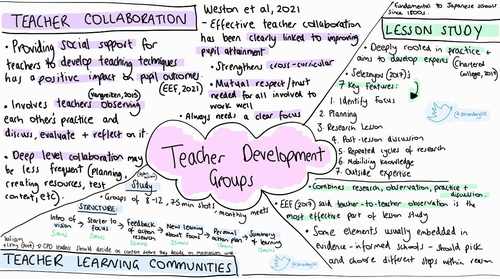 TEACHER COLLABORATION
• Providing social support for
teachers to develop teaching techniques
has a positive impact on pupil outcomes.
(EEF, 2021)
• Involves teachers observing
each other's practice and
discuss, evaluate + reflect on it.
• Deep level collaboration may
be less frequent (planning,
creating resources, test
content, etc).
Weston et al, 2021
- Effective teacher collaboration
has been clearly linked to improving
pupil attainment
• Strengthens cross-curricular
• Mutual respect/trust
needed for all involved to
work well
• Always needs a clear focus
fundamental to Japanese schools
since 1800s.
LESSON STUDY
• Deeply rooted in practice +
aims to develop experts (Chartered
College, 2019)
7 Key Features:
1. Identify focus
2. Planning
3. Research lesson
4. Post-lesson discussion
5. Repeated cycles of research
6. Mobilising knowledge
7. Outside expertise
• Combines research, observation, practice + discussion.
• EEF (2017) said teacher-to-teacher observation is the
most effective part of lesson study
• Some elements usually embedded in
evidence-informed schools - should pick
and choose different steps within reason
Teacher Development
Groups
Study
- Groups of 8-12, 75 min slots
monthly meets
STRUCTURE:
Intro of
session
Starter to
focus
Feedback
of action
research
New learning
about focus
Personal
action plan
Summary
+ learning
TEACHER LEARNING COMMUNITIES